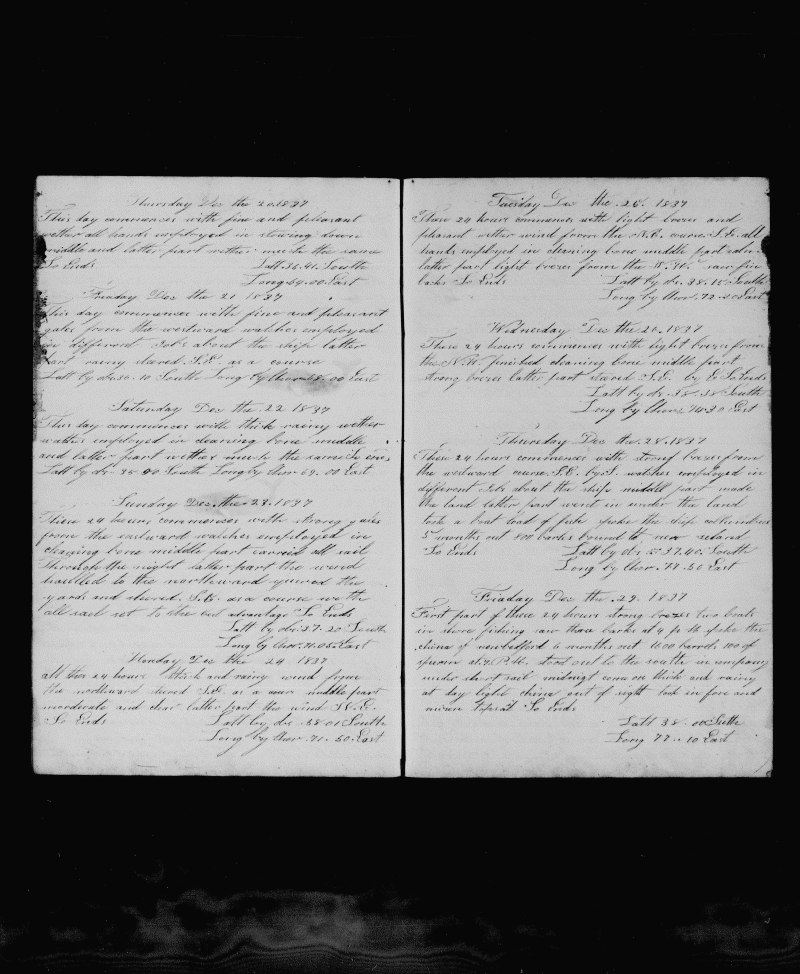 Thursday Dec the 20 1837
This day commences with fine and pleasant
wether all hands employed in stowing down
middle and latter part wether much the same
So Ends Latt 36.41 South
Long 69.00 East
Friaday Dec the 21 1837
this day commences with fine and pleasant
gales from the westward watches employed
in different Jobs about the ship latter
part rainy stured S.E. as a course
Latt by dr 36.10 South Long by Chor 68.00 East
Saturday Dec the 22 1837
This day commences with thick rainy wether
watches employed in cleaning bone middle
and latter part wether much the same So ends
Latt by dr 35.00 South Long by Chor 69.00 East
Sunday Dec the 23 1837
These 24 hours commences with strong gales
from the eastward watches employed in
cleaning bone middle part carried all sail
through the night latter part the wind
hawlled to the northward the
yards and stured S.E. as a course with
all sail set to the best advantage So Ends
Latt by dr 37.20 South
Long by Chor 71.05 East
Monday Dec the 24 1837
all thes 24 hours thick and rainy wind from
the northward stured S.E. as a middle part
morderate and clear latter part the wind
So Ends Latt by dr 38.01 South
Long by Chor 71.50 East
Tuesday Dec the 25 1837
These 24 hours commences with light brezes and
pleasant wether wind from the N.E. course S.E. all
hands employed in cleaning bone middle part calm
latter part light brezes from the saw fin
backs So Ends Latt by dr 38.15 South
Long by Chor 72.20 East
Wednesday Dec the 26 1837
These 24 hours commences with light brezes from
the N.W. finished cleaning bone middle part
strong brezes latter part stured S.E. by E So Ends
Latt by dr 38.38 South
Long by Chor 74.30 East
Thursday Dec the 28 1837
These 24 hours commence with strong brezes from
the westward course S.E. by S. watches employed in
different Jobs about the ship middle part made
the land latter part went in under the land
took a boat load of fish spoke the ship collumbus
5 months out 800 barles bound to new zeland
So Ends Latt by dr 37.40 South
Long by Chor 77.50 East
Friaday Dec the 29 1837
First part of these 24 hours strong brezes two boats
in shore fishing saw three barks at 4 P M spoke the
china of newbedford 6 months out 1600 barrels 100 of
sperm at P.M. stood out to the south in company
under short sail midnigt came on thick and rainy
at day light china out of sight took in fore and
topsail So Ends
Latt 38.00 Suth
Long 77.10 East